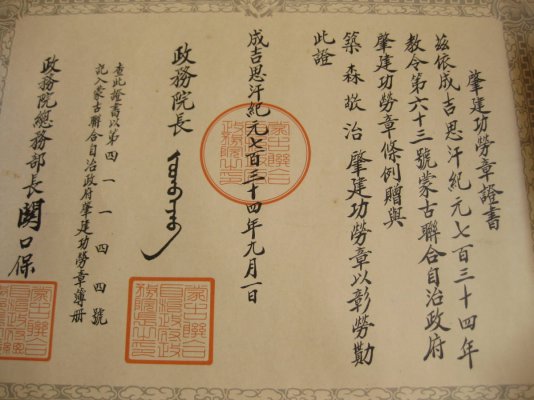 肇建功勞章證書
茲依成吉思汗紀元七百三十四年
教令第六十三號蒙古聯合自治政府
肇建功勞章條例贈與
築森敬治肇建功勞章以彰勞勩
此證
成吉思汗紀元七百三十四年九月一日
政務院長
查此證書以第四一一四四號
記入蒙古聯合自治政府肇建功勞章簿册
政務院總務部長關口保